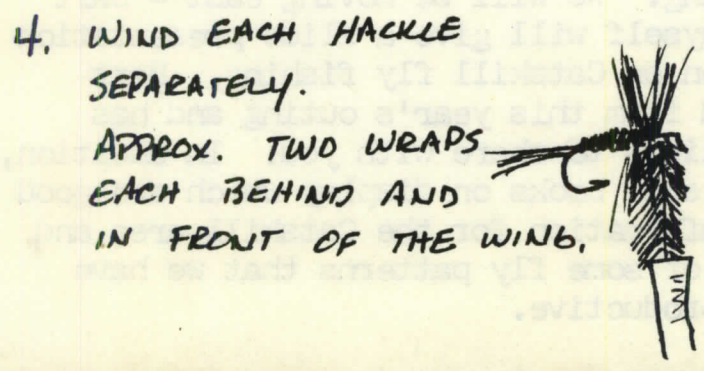 4. WIND EACH HACKLE
SEPARATELY.
APPROX. TWO WRAPS
EACH BEHIND AND
IN FRONT OF THE WING.